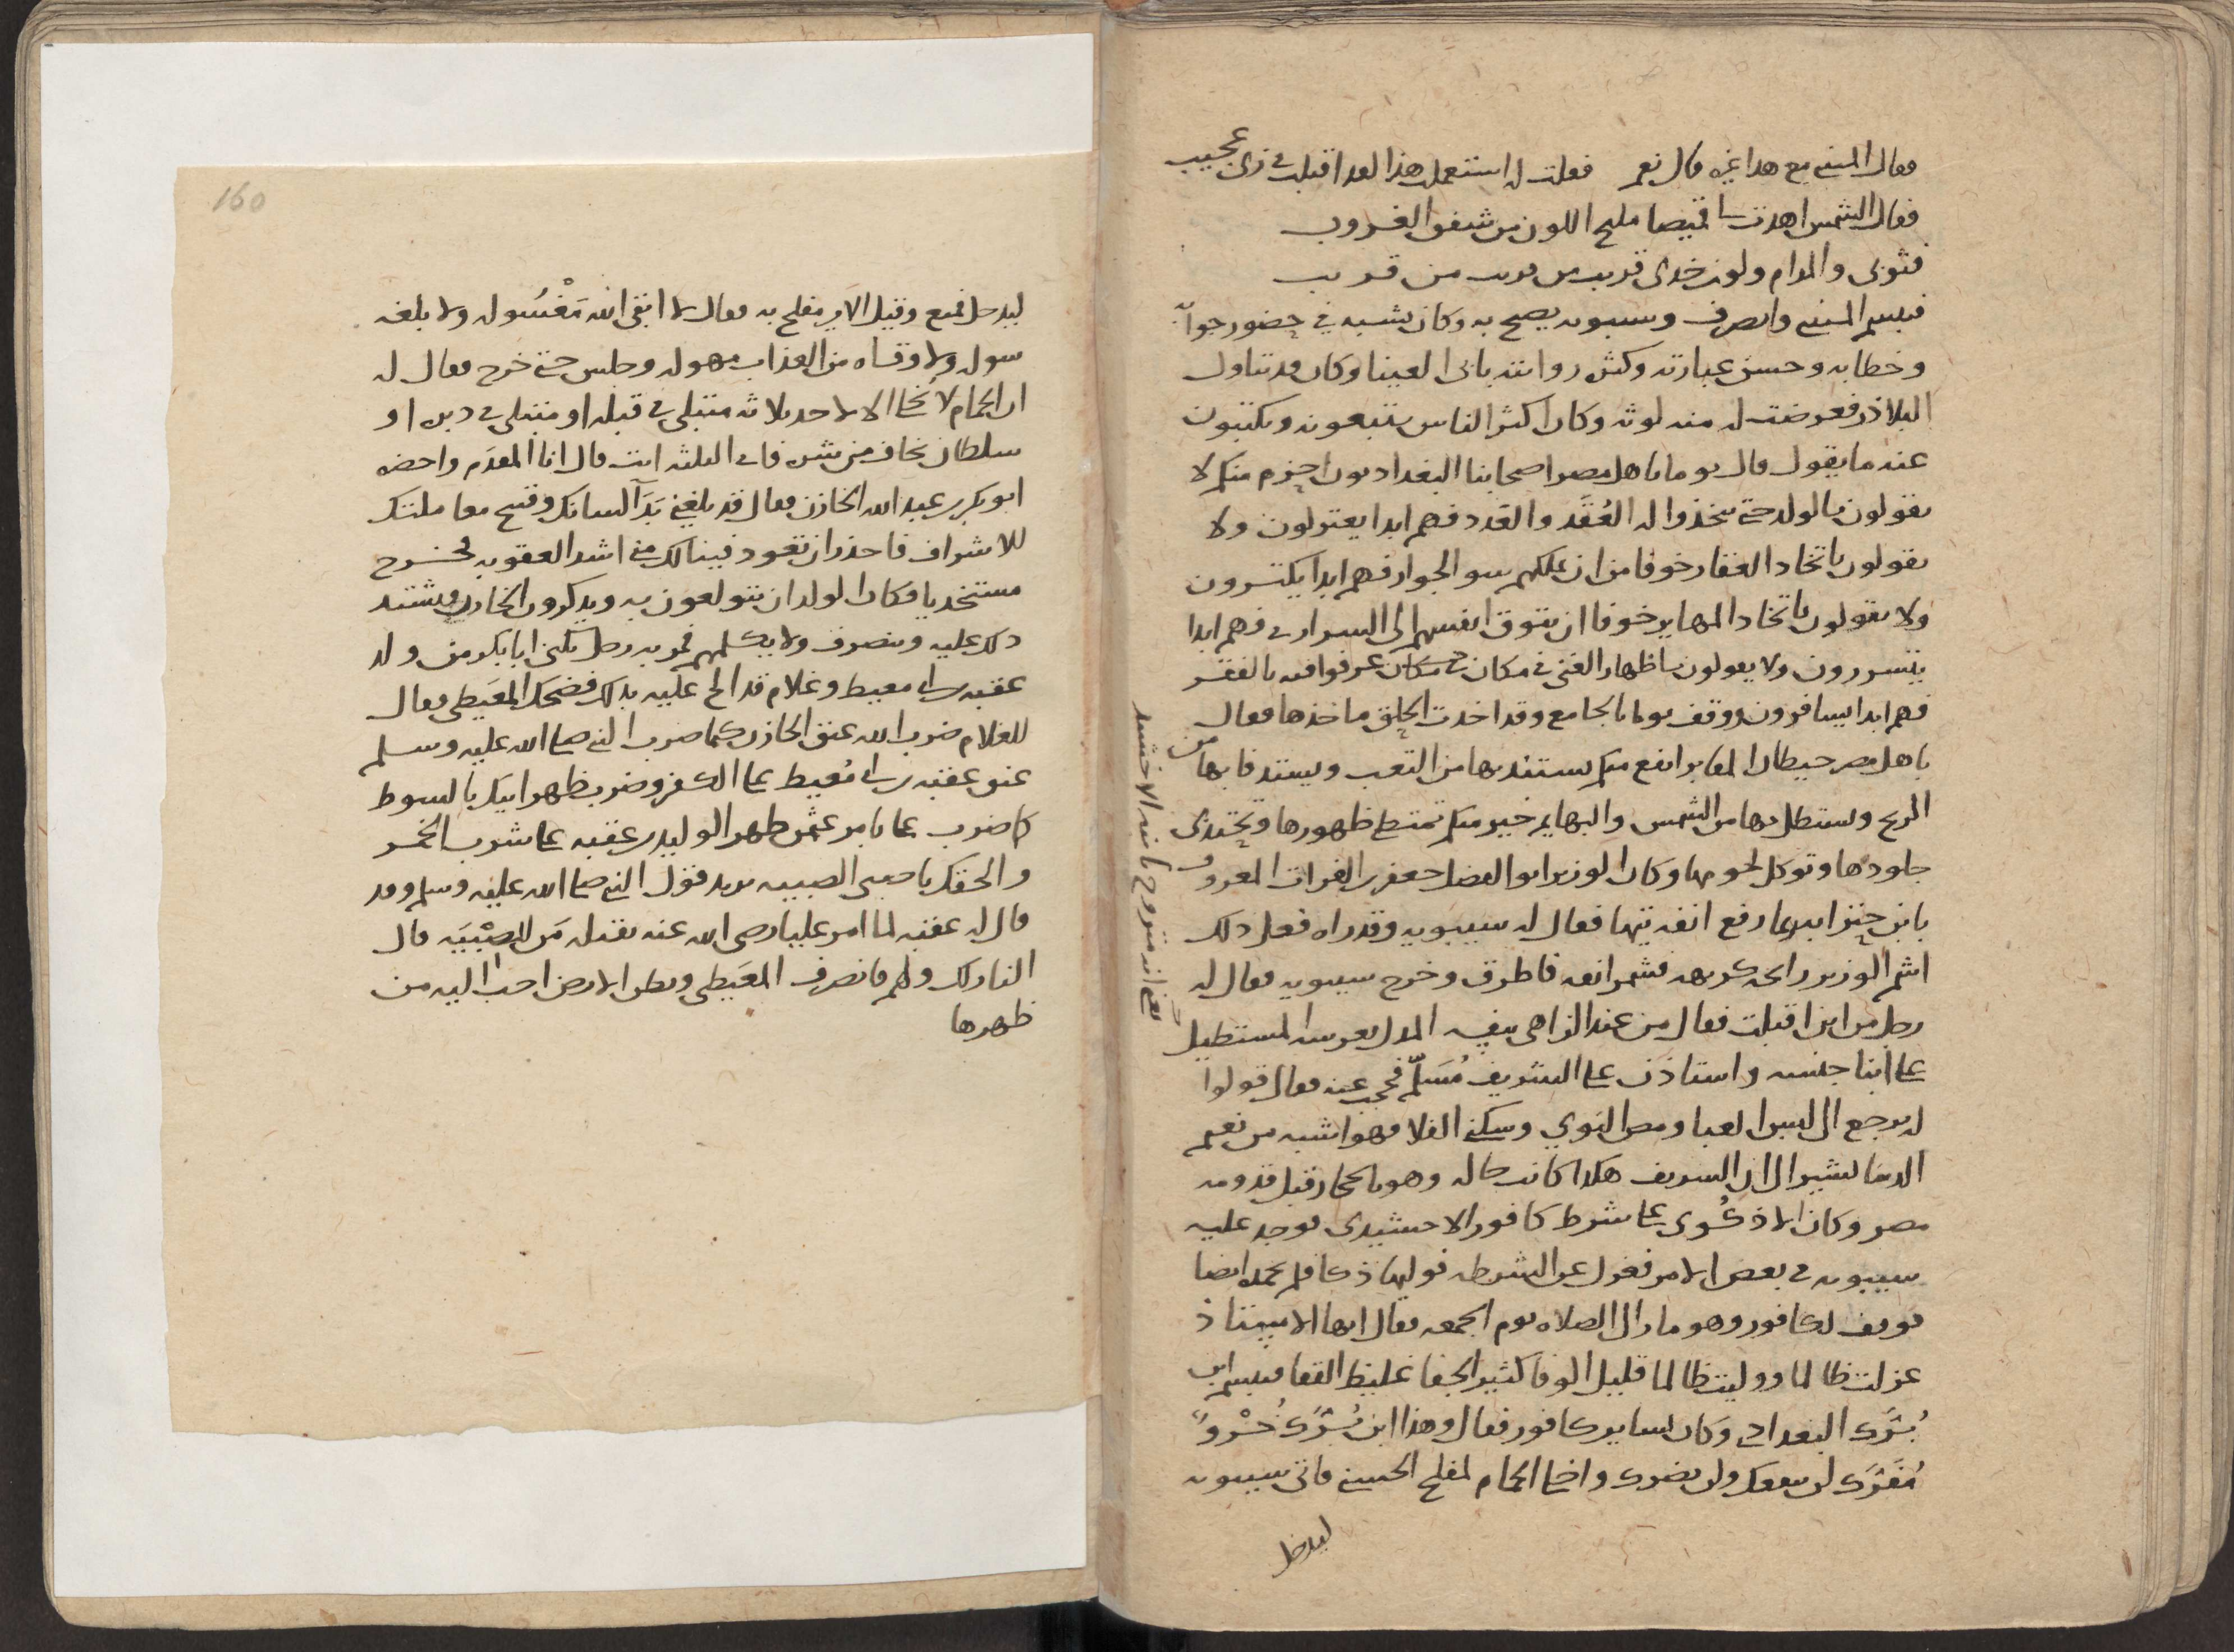 فقال المتنبي مع هذا غيره قال نعم فقلت له استعملت هذا لقد اقبلت في زي عجيب
فقال الشمس اهدت لي قميصا مليح اللون من شفق الغروب
فثوبي والمدام ولون خدي قريب من قريب من قريب
فتبسم المتنبي وانصرف وسيبويه يصيح به وكان يشبه في حضور جوابه
وخطابه وحسن عبارته وكثرة روايته بابي العينا وكان قد تناول
البلاذر فعرضت له منه لوثه وكان اكثر الناس يتبعونه ويكتبون
عنه ما يقول قال يوما يا اهل مصر اصحابنا البغداديون احزم منكم لا
يقولون بالولد حتى يتخذوا له العُقَد والعدد فهم ابدا يعتزلون ولا
يقولون باتخاذ العقار خوفا من ان يملكهم سو الجوار فهم ابدا يكترون
ولا يقولون باتخاذ المهاير خوفا ان تتوق انفسهم الى السراري فهم ابدا
يتسررون ولا يقولون باظهار الغنى في مكان عرفوا فيه بالفقر
فهم ابدا يسافرون ووقف يوما بالجامع وقد اخذت الحلق ماخذها فقال
يا اهل مصر حيطان المقابر انفع منكم يستند بها من التعب ويستدفا بها من
الريح ويستظل بها من الشمس والبهايم خير منكم تمتطى ظهورها وتحتذى
جلودها وتوكل لحومها وكان الوزير ابو الفضل جعفر بن الفرات المعروف
بابن حنزابه ربما رفع انفه تيها فقال له سيبويه وقد راه فعل ذلك
اشم الوزير رايحه كريهه فشمر انفه فاطرق وخرج سيبويه فقال له
رجل من اين اقبلت فقال من عند الزاهي بنفسه المدل بعرسه المستطيل
على ابنا جنسه واستاذن على الشريف مُسَلّم فحجب عنه فقال قولوا
له يرجع الى لبس العبا ومص النوي وسكنى الفلا فهو اشبه من نعيم
الدنيا يشير الى ان الشريف هكذا كانت حاله وهو بالحجاز قبل قدومه
مصر وكان على شرط كافور الاخشيدي فوجد عليه
سيبويه في بعض الامر فعزل عن الشرطه فوليها فلم يحمد ايضا
فوقف لكافور وهو مار الى الصلاه يوم الجمعه فقال ايها الاستاذ
عزلت ظالما ووليت ظالما قليل الوفا كثير الجفا غليظ القفا فتبسم ابن
بُرَك البغدادي وكان يساير كافور فقال وهذا ابن بُرَك
لن ينفعك ولن يضرك واخلى الحمام لمفلح الحسيني فاتى سيبويه
ليدخل
الاخشيد
160
ليدخل فمنع وقيل الامير مفلح به فقال لا انقى الله مَغْسُوله ولا بلغه
سوله ولا وقاه من العذاب مهوله وجلس حتى خرج فقال له
ان الحمام لا تُخلى الا لاحد ثلاثه مبتلى في قبله او مبتلى في دبره او
سلطان يخاف من شره فاي الثلثه انت قال انا المقدم واحضره
ابو بكر بن عبد الله الخازن فقال قد بلغني بَذَآ لسانك وقبح معاملتك
للاشراف فاحذر ان تعود فينالك مني اشد العقوبه فخرج
مستخذيا فكان الولدان يتولعون به ويذكرون الخازن فيشتد
ذلك عليه وينصرف ولا يكلمهم فمر به رجل يكنى ابا بكر من ولد
عقبه بن ابي معيط وغلام قد الح عليه بذلك فضحك المعَيطي فقال
للغلام ضرب الله عنق الخازن كما ضرب النبي صلى الله عليه وسلم
عنق عقبه بن ابي مُعيط على الكفر وضرب ظهر ابيك بالسوط
كما ضرب علي بامر عثمن ظهر الوليد بن عقبه على شرب الخمر
والحقك يا صبي بالصبيه يريد قول النبي صلى الله عليه وسلم وقد
قال له عقبه لما امر عليا رضي الله عنه بقتله مَن للصِبْيَه قال
النار لك ولهم فانصرف المعَيطي وبطن الارض احب اليه من
ظهرها